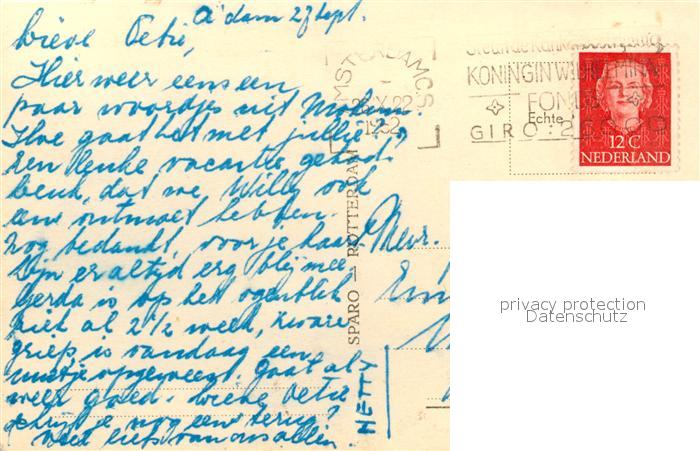 A'dam 27 sept.
Lieve Petie,
Hier weer eens een
paar woordjes uit Mokum.
Hoe gaat het met jullie?
een leuke vacantie gehad.
Leuk, dat we Willy ook
ontmoet hebben.
Nog bedankt, voor je kaart
Zijn er altijd erg blij mee.
Gerda is op het ogenblik
ziek al 2 1/2 week, zware
griep, is vandaag een
uurtje opgeweest. Gaat al
weer goed. Lieve Petie
schrijf je nog eens terug?
veel liefs van ons allen.
HETTY
SPARO — ROTTERDAM
AMSTERDAM CS
KONINGIN WILHELMINA
FONDS
GIRO:
Echte
12 C
NEDERLAND
Mevr.
privacy protection
Datenschutz